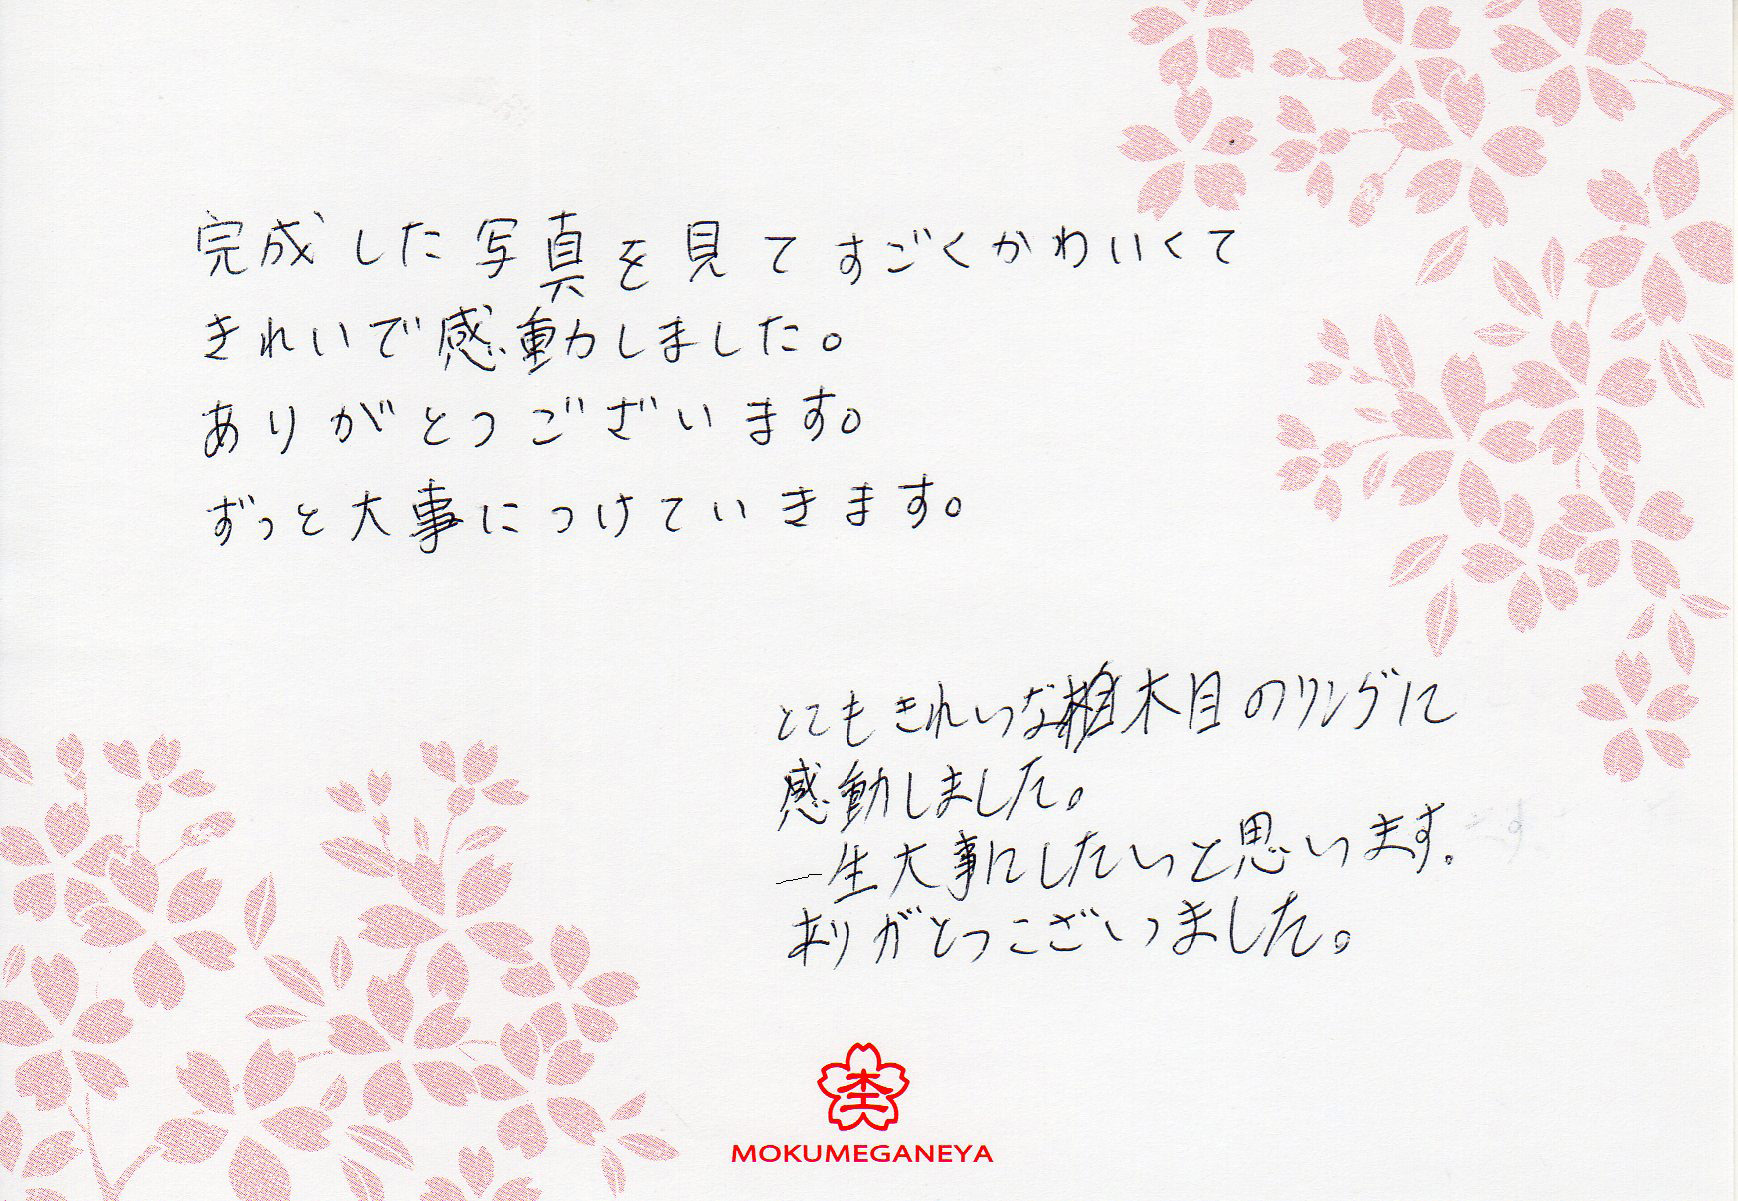 完成した写真を見てすごくかわいくて
きれいで感動しました。
ありがとうございます。
ずっと大事につけていきます。
とてもきれいな木目のリングに
感動しました。
一生大事にしたいと思います。
ありがとうございました。
杢
MOKUMEGANEYA